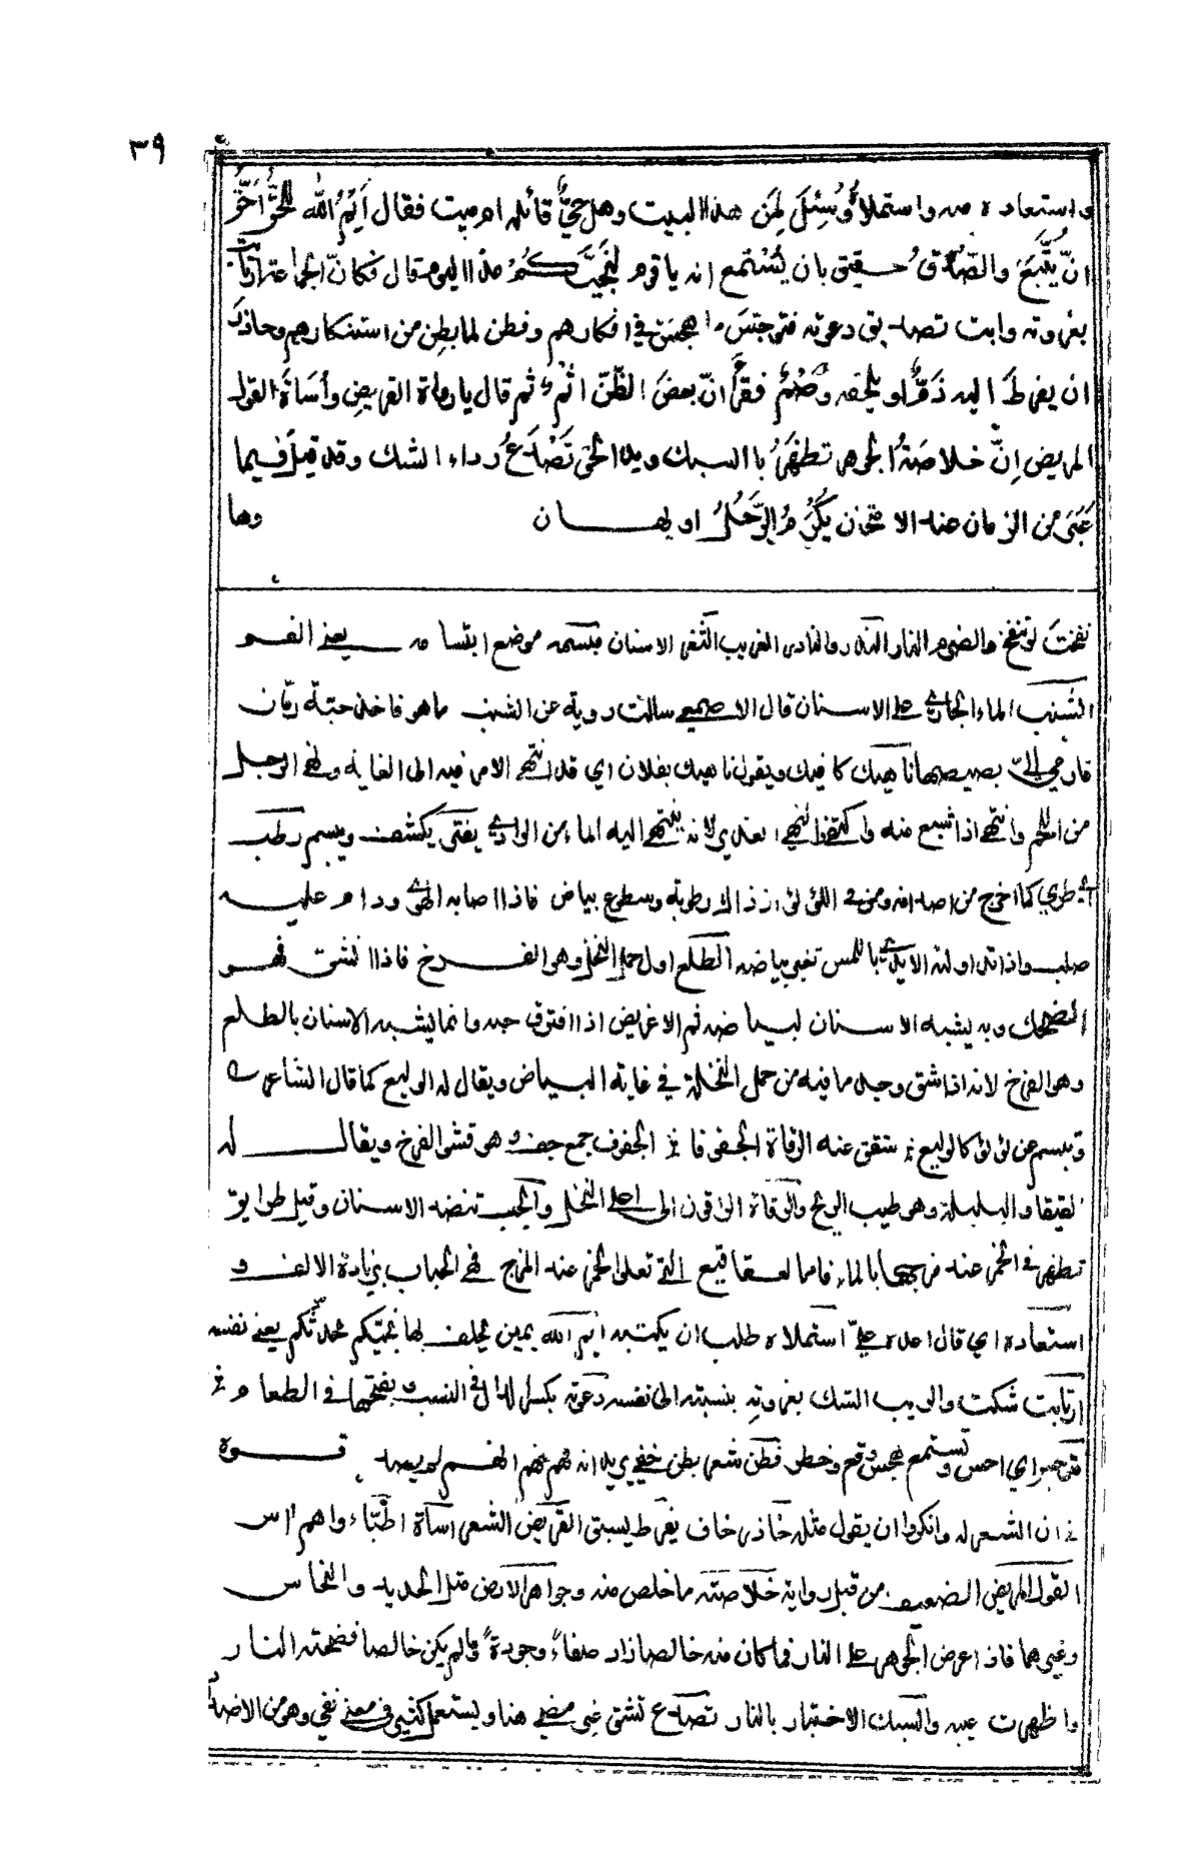 ٣٩
واستعاده منه واستملاهُ وسُئِلَ لِمَن هذا البيت وهل حيٌّ قائله ام ميت فقال اَيْمُ الله للحقُّ اَحَقُّ
انّ يُتَّبَعَ والصّدقُ حقيق بان يُسْتمع انه يا قوم لنجيّكُمُ مذ اليوم قال فكانّ الجماعة ارتابت
بعزوته وابت تصديق دعوته فتوجّسَ ما هجس في افكارهم وفطن لما بطن من استنكارهم وحاذر
ان يفرط اليه ذمٌّ او يلحقه وَصْمٌ فقرأ انّ بعضَ الظّنّ اثمٌ ثم قال يا رواة القريض وأساة القول
المريض اِنّ خلاصة الجوهر تظهرُ بالسبك ويد الحق تَصْدَعُ رداء الشك وقد قيل فيما
غَبَرَ من الزمان عند الامتحان يُكْرَمُ الرَّجُلُ او يهان وها
نفخت لو تنفخ والضرم النار النادر والنادى الغريب الثغر الاسنان مبسمه موضع ابتسامه يعنى الفم
الشنب الماء الجارى على الاسنان قال الاصمعى سالت روبة عن الشنب ما هو فاخذ حبّة رمّان
فاومى الىّ بصيصها ناهيك كافيك ويقول ناهيك بفلان اي قد انتهى الامر فيه الى الغاية ونهى الرجل
من اللحم وانتهى اذا شبع منه واكتفى لانه ينتهى اليه الماء من الوادى يفتر يكشف ويبسم رطب
طري كما اخرج من اصدافه ومن اللؤلؤ اذ ذاك رطوبة وسطوع بياض فاذا اصابه الهوى ودام عليه
صلب واذا تداولته الايدى باللمس تغير بياضه الطلع اول حمل النخل وهو الفرخ فاذا انشق فهو
الضحك وبه يشبه الاسنان لبياضه ثم الاغريض اذا افترق حبه وانما يشبه الاسنان بالطلع
وهو الفرخ لانه اذا شق وجد ما فيه من حمل النخلة في غاية البياض ويقال له الوليع كما قال الشاعر
وتبسم عن لؤلؤ كالوليع تشقق عنه الرقاة الجفوفا الجفوف جمع جف وهو قشر الفرخ ويقال له
القيقاء والبلبلة وهو طيب الريح والرقاة الراقون الى اعلى النخل والحبب تنضد الاسنان وقيل طرايق
تظهر في الخمر عند مزجها بالماء فاما الفقاقيع التى تعلو الخمر عند المزج فهى الحباب بزيادة الالف و
استعاده اي قال اعده علىّ استملاه طلب ان يكتبه ايم الله يمين يحلف بها نجيكم محدثكم يعنى نفسه
ارتابت شكت والريب الشك بعزوته بنسبته الى نفسه دعوته بكسر الدال في النسب وبفتحها في الطعام
فتوجس اي احس وتسمع هجس وقع وخطر فطن شعر بطن خفى يريد انه فهم انهم لم يصد قوه
ان الشعر له وانكروا ان يقول مثله حاذر خاف يفرط يسبق القريض الشعر اساة اطبّاء واهم اس
القول المريض الضعيف من قبل رواية خلاصته ما خلص منه وجواهر الارض مثل الحديد والنحاس
وغيرهما فاذا عرض الجوهر على النار فما كان منه خالصا زاد صفاءً وجودةً وما لم يكن خالصا فضحته النار
واظهرت عيبه والسبك الاختبار بالنار تصدع تشق غبر مضى هنا ويستعمل كثير في معنى بقى وهو من الاضداد